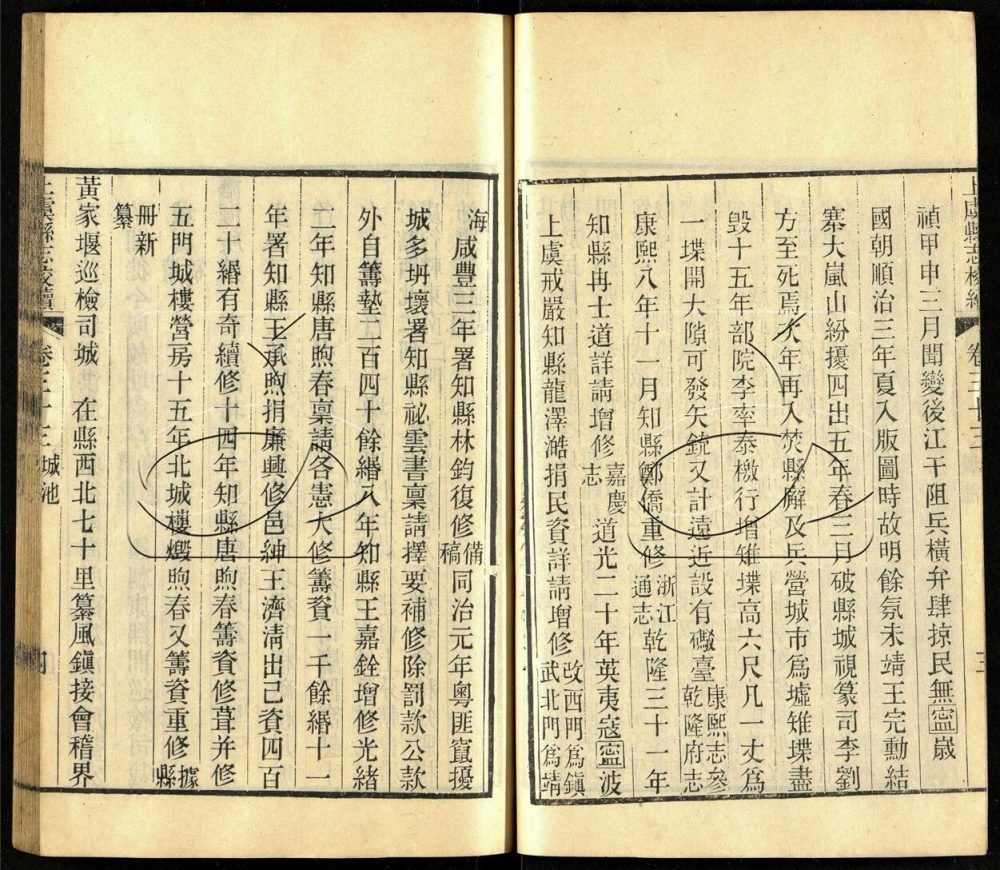 上虞縣志校續 卷三十三
禎甲申三月聞變後江干阻兵橫弁肆掠民無寍歲
國朝順治三年夏入版圖時故明餘氛未靖王完勳結
寨大嵐山紛擾四出五年春三月破縣城視篆司李劉
方至死焉次年再入焚縣廨及兵營城市爲墟雉堞盡
毀十五年部院李率泰檄行增雉堞高六尺凡一丈爲
一堞開大隙可發矢銃又計遠近設有礮臺康熙志參乾隆府志
康熙八年十一月知縣鄭僑重修浙江通志乾隆三十一年
知縣冉士道詳請增修嘉慶志道光二十年英夷寇寍波
上虞戒嚴知縣龍澤澔捐民資詳請增修改西門爲鎭武北門爲靖
海咸豐三年署知縣林鈞復修備稿同治元年粵匪竄擾
城多坍壞署知縣祕雲書稟請擇要補修除罰款公款
外自籌墊二百四十餘緡八年知縣王嘉銓增修光緒
二年知縣唐煦春稟請各憲大修籌資一千餘緡十一
年署知縣王承煦捐廉興修邑紳王濟淸出己資四百
二十緡有奇續修十四年知縣唐煦春籌資修葺并修
五門城樓營房十五年北城樓燬煦春又籌資重修據縣
冊新纂
黃家堰巡檢司城 在縣西北七十里纂風鎭接會稽界
上虞縣志校續 卷三十三 城池